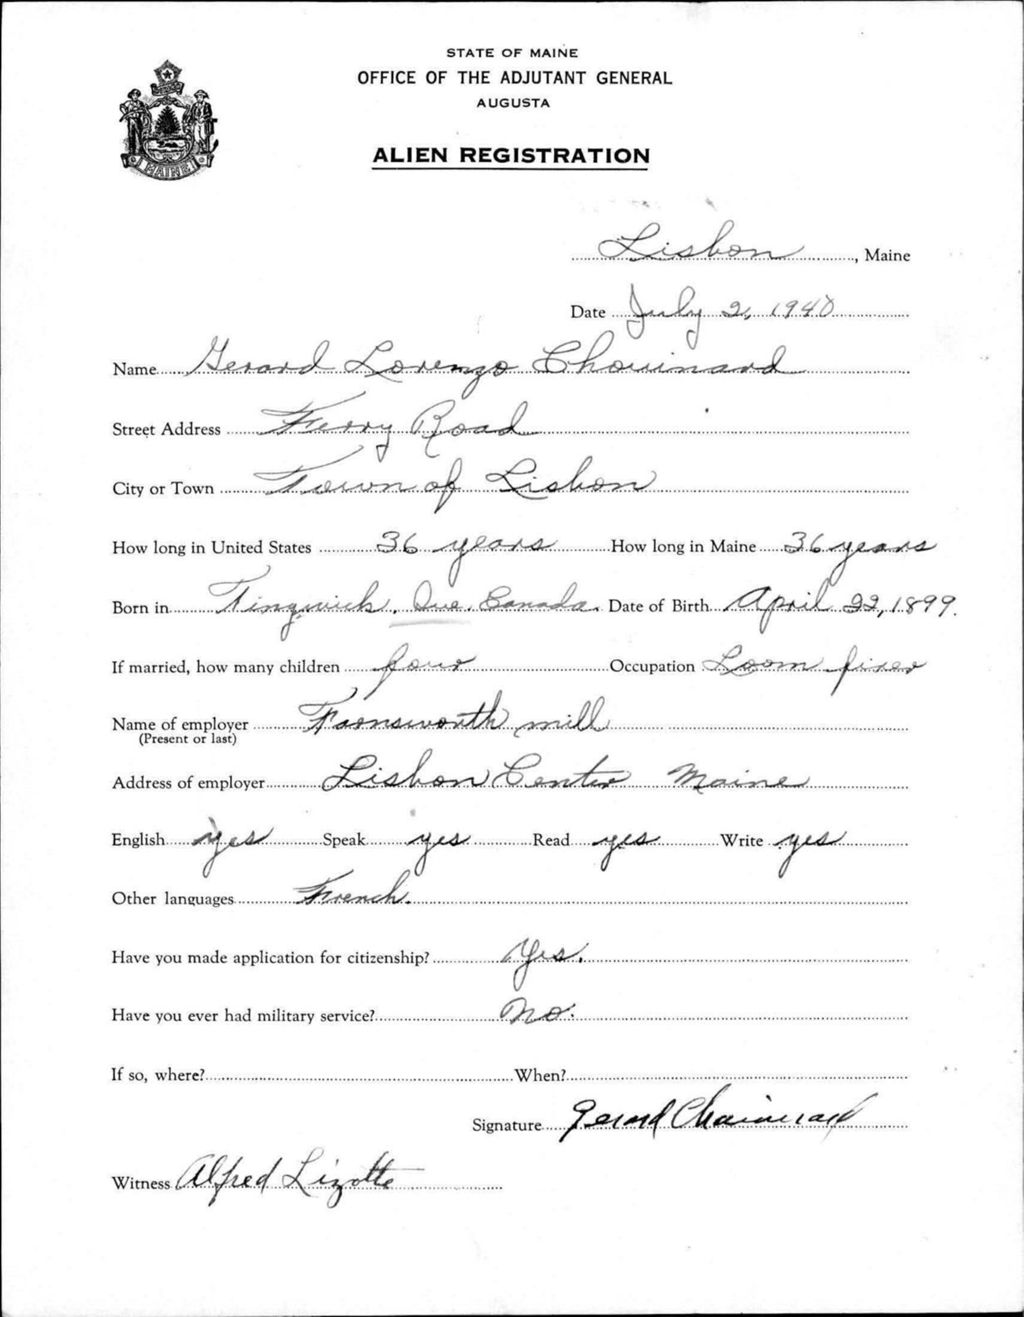 STATE OF MAINE
OFFICE OF THE ADJUTANT GENERAL
AUGUSTA
ALIEN REGISTRATION
MAINE
Lisbon, Maine
Date July 2, 1940
Name Gerard Lorenzo Chouinard
Street Address Ferry Road
City or Town Town of Lisbon
How long in United States 36 years How long in Maine 36 years
Born in Tingwick, Que. Canada. Date of Birth April 22, 1899.
If married, how many children four Occupation Loom fixer
Name of employer Farnsworth mill
(Present or last)
Address of employer Lisbon Center Maine
English yes Speak yes Read yes Write yes
Other languages French.
Have you made application for citizenship? Yes.
Have you ever had military service? No.
If so, where? When?
Signature Gerard Chouinard
Witness Alfred Lizotte